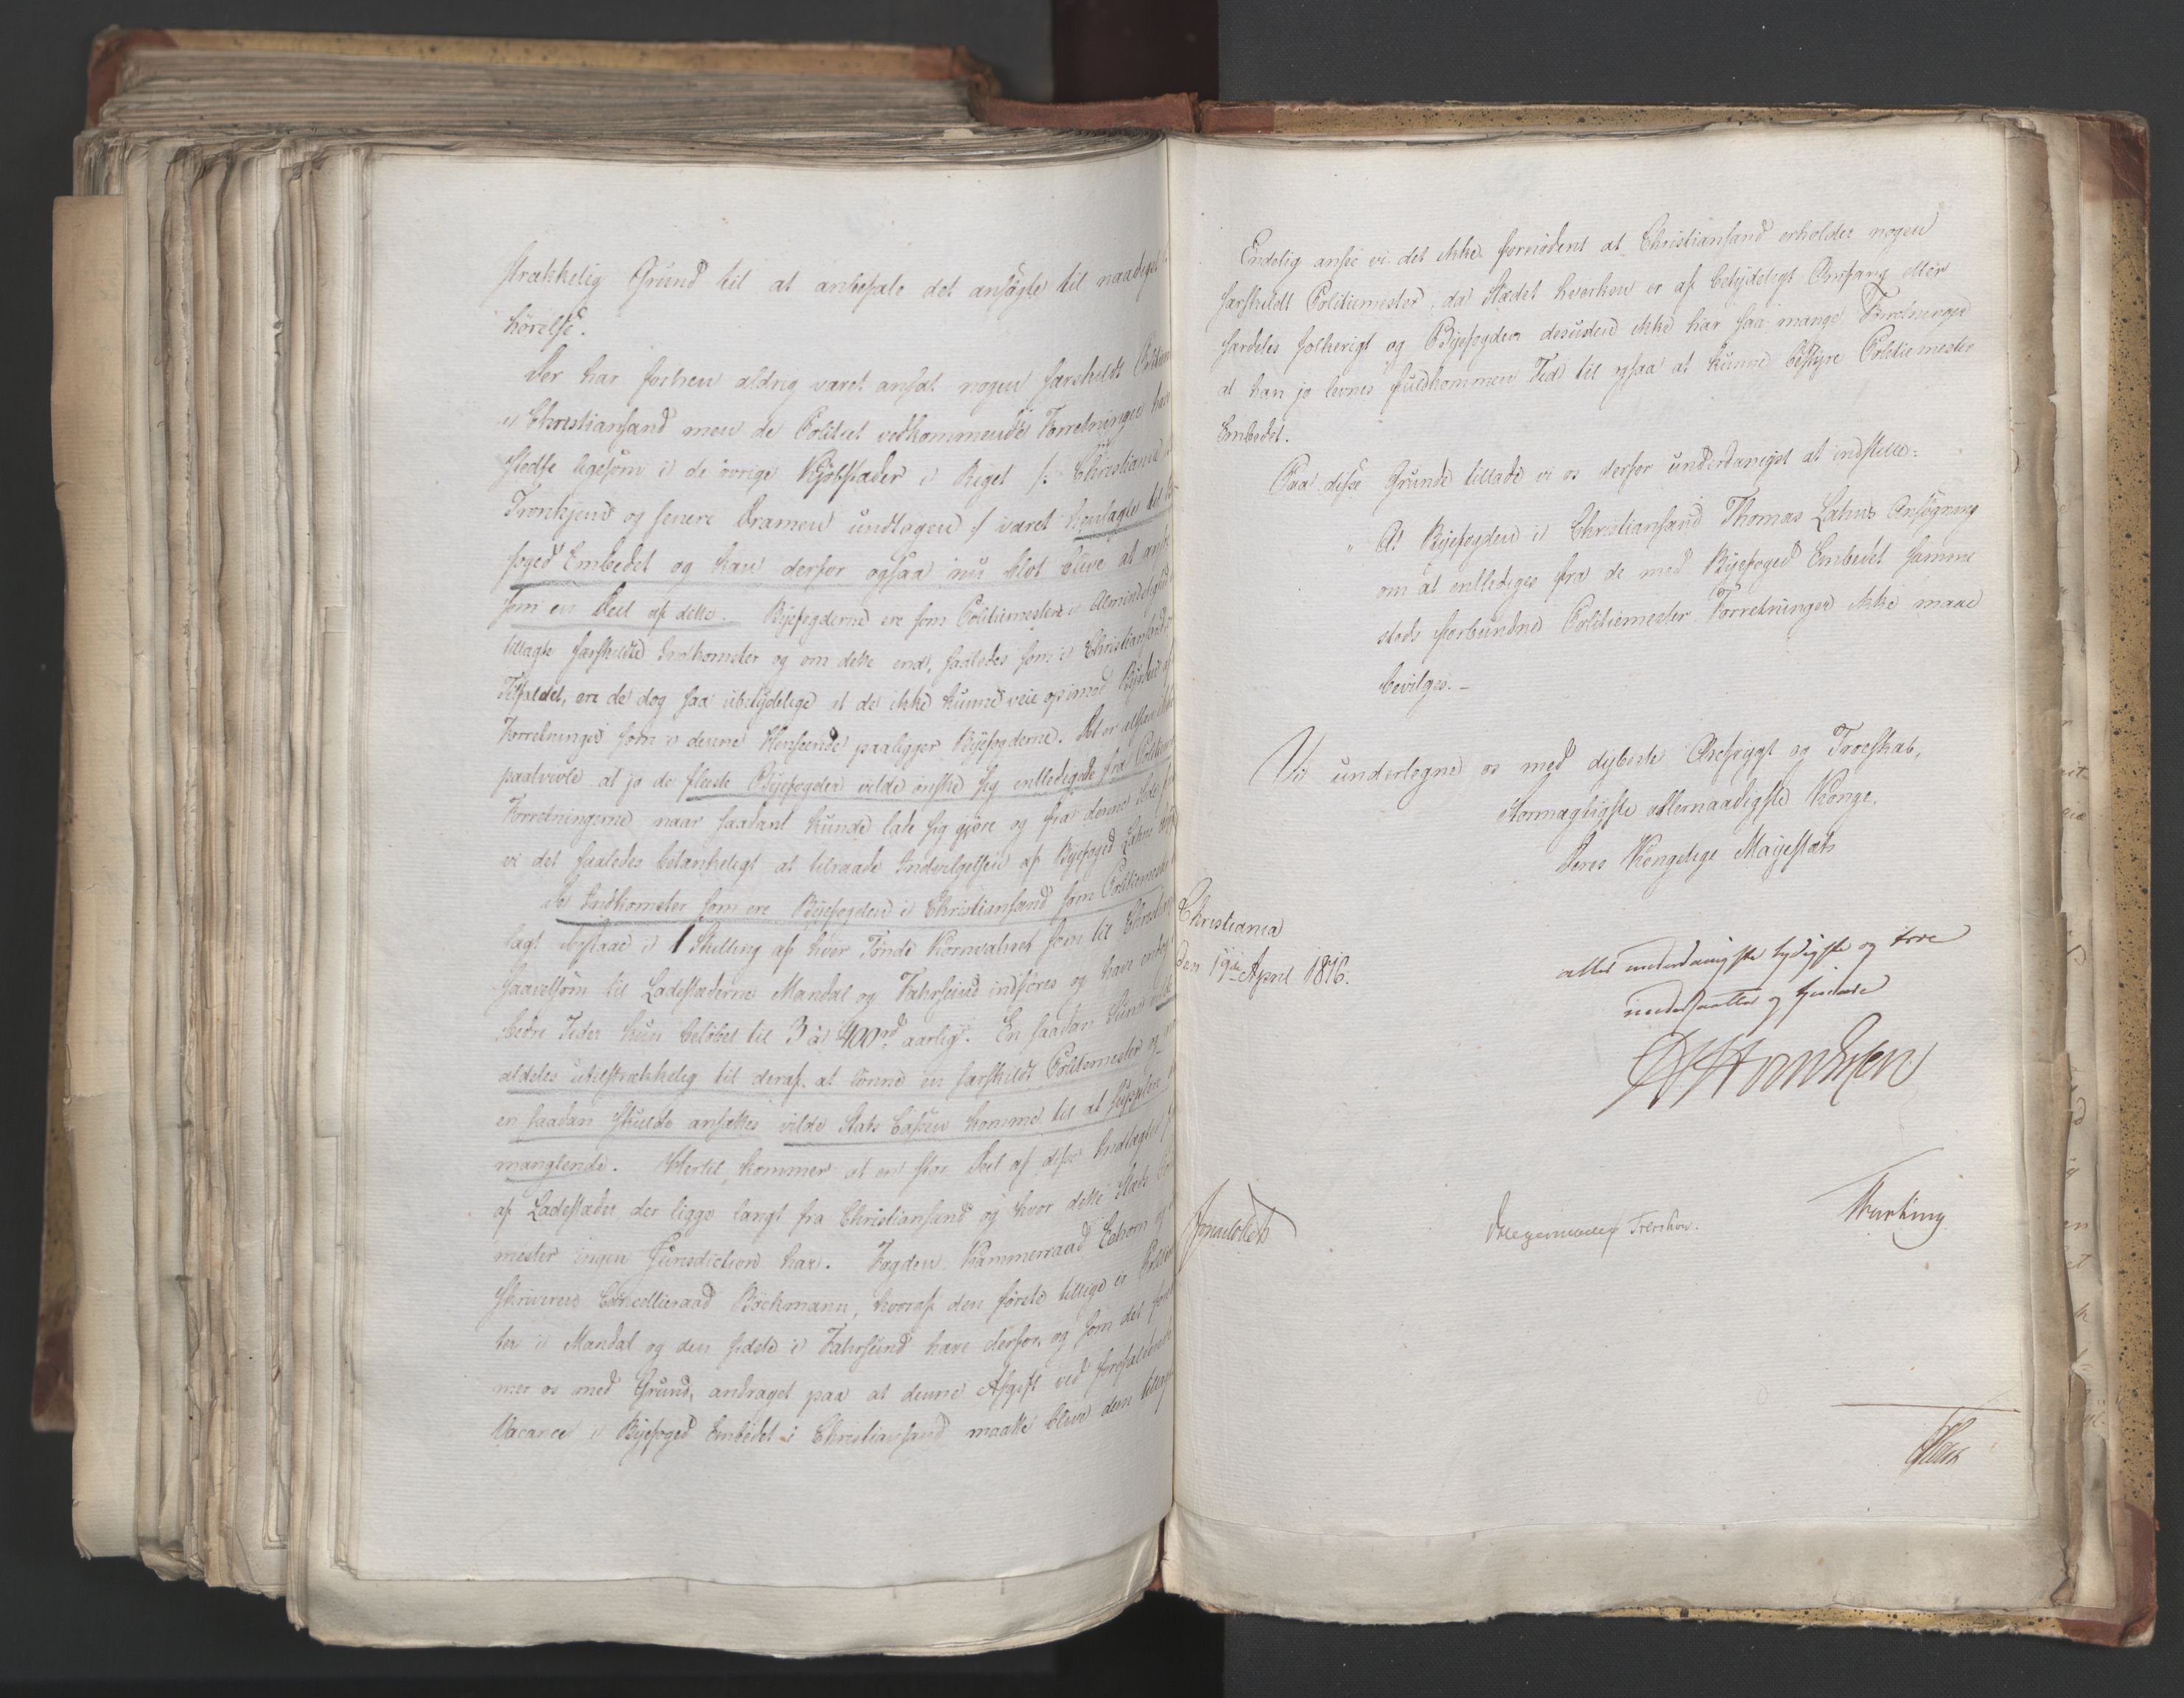 strækkelig Grund til at anbefale det ansøgte til naadigst
hørelse.
Der har forhen aldrig været ansat nogen særskildt
i Christiansand men de Politiet vedkommende Forretninger have
stedse ligesom i de øvrige Kjøbstæder i Riget /: Christiania
Tronhjem og senere Dramen undtagen :/ været henlagte til
foged Embedet og kan derfor ogsaa nu blot blive at
som en Deel af dette. Byefogderne ere som Politiemestere i Almindelighed
tillagte særskildte Indkomster og om dette end, saaledes som i Christiansand
Tilfældet, ere de dog saa ubetydelige at de ikke kunne veie op imod Byrden af
Forretninger som i denne Henseende paaligger Byefogderne. Det er altsaa
paatvivle at jo de fleeste Byefogder vilde ønske sig entledigede fra
Forretningerne naar saadant kunde lade sig gjøre og fra denne Side
vi det saaledes betænkeligt at tilraade Indvilgelsen af Byefoged Lahns
De Indkomster som ere Byefogden i Christiansand som Politiemester
lagt bestaae i 1 Skilling af hver Tønde Kornvahret som til
saavelsom til Ladestæderne Mandal og Fahrsund indføres og have
bedre Tider kun beløbet til 3 à 400 rd aarlig. En saadan Sum
aldeles utilstrækkelig til deraf at lønne en særskildt Politiemester og
en saadan skulde ansættes vilde Stats Cassen komme til at supplere
manglende. Hertil kommer at en stor Deel af disse Indtægter
af Ladestæder der ligge langt fra Christiansand og hvor dette Steds
mester ingen Jurisdiction har. Fogden Kammerraad
skriveren Cancellieraad Böckmann, hvoraf den første tillige er
ter i Mandal og den sidste i Fahrsund have derfor, og som det
mer os med Grund, andraget paa at denne Afgift ved forefaldende
Vacance i Byefoged Embedet i Christiansand maatte blive dem
Endelig ansee vi det ikke fornødent at Christiansand erholder nogen
særskildt Politiemester, da Stædet hverken er af betydeligt Omfang eller
særdeles folkerigt og Byefogden desuden ikke har saa mange Forretninger
at han jo levnes fuldkommen Tid til ogsaa at kunne bestyre Politiemester
Embedet.
Paa disse Grunde tillade vi os derfor underdanigst at indstille:
" At Byefogden i Christiansand Thomas Lahns Ansøgning
om at entlediges fra de med Byefoged Embedet samme
steds forbundne Politiemester Forretninger ikke maae
bevilges. —
Vi undertegne os med dybeste Ærefrygt og Troeskab,
Stormægtigste allernaadigste Konge.
Deres Kongelige Majestæts
Christiania
den 19de April 1816.
allerunderdanigste lydigste og troe
undersaatter og tjenere
Treschow.